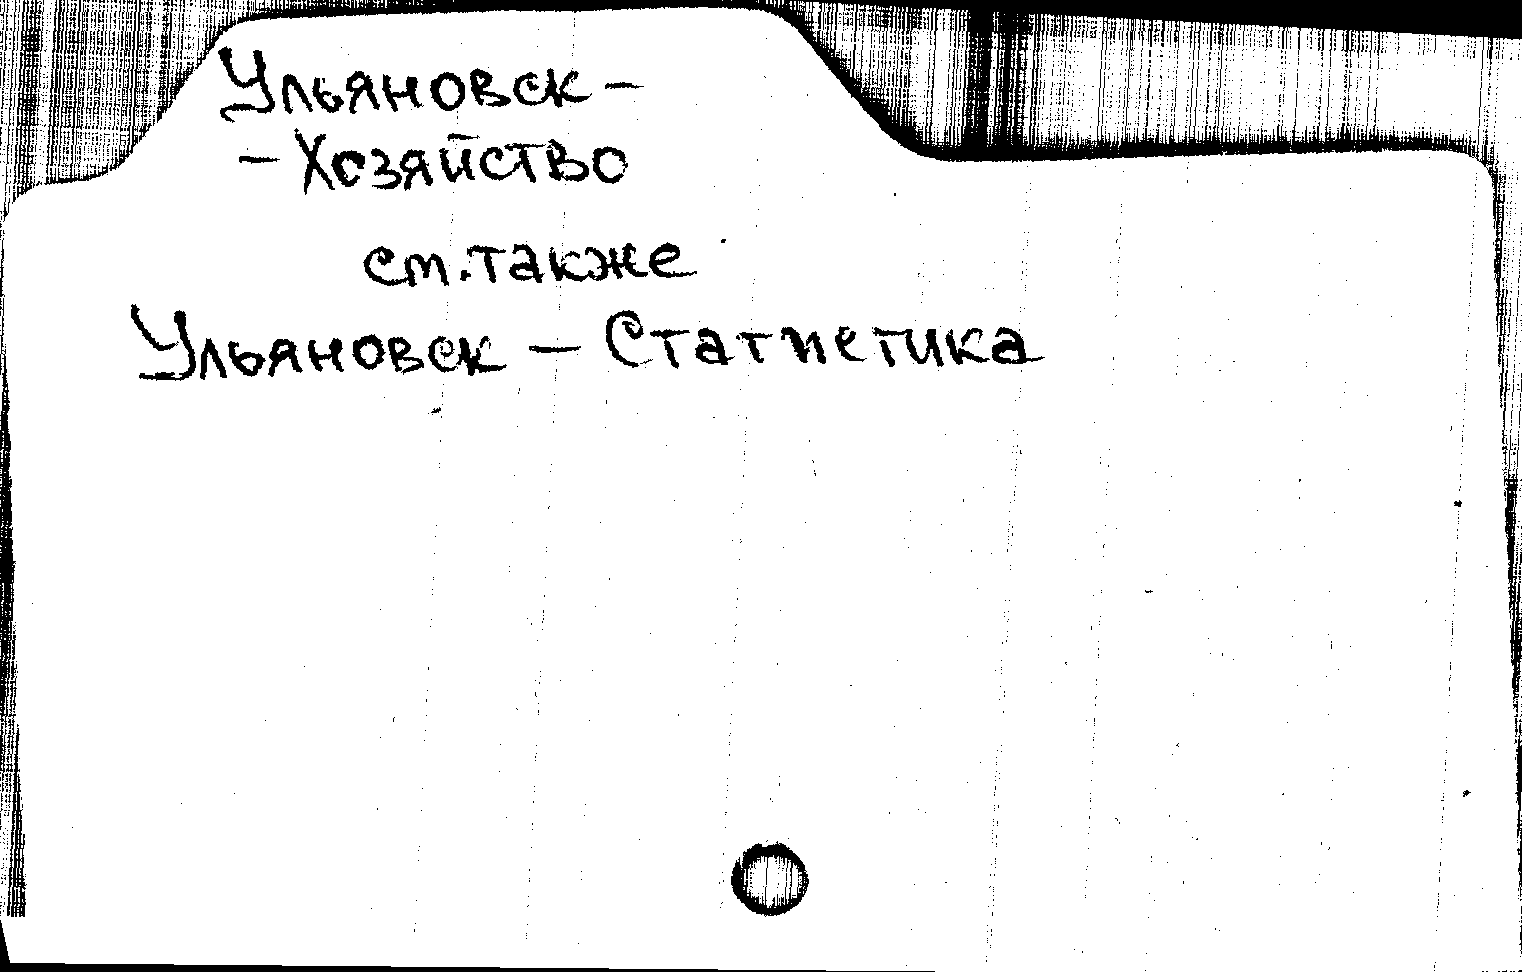 Ульяновск –
– Хозяйство
см. также
Ульяновск – Статистика